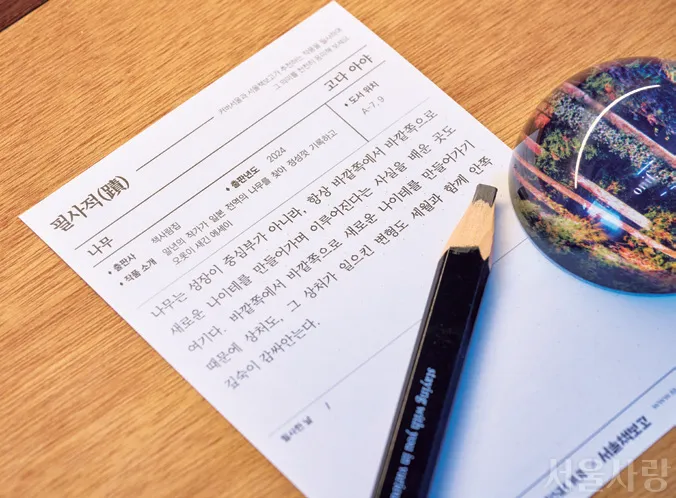 필사적(蹟)
커버서울과 서울책보고가 추천하는 작품을 필사하며
그 의미를 천천히 음미해 보세요.
나무
고다 아야
• 출판사 책사람집
• 출판년도 2024
• 도서 위치
A-7, 9
• 작품 소개 일년의 작가가 일본 전역의 나무를 찾아 정성껏 기록하고
오롯이 새긴 에세이
나무는 성장이 중심부가 아니라, 항상 바깥쪽에서 바깥쪽으로
새로운 나이테를 만들어가며 이루어진다는 사실을 배운 곳도
여기다. 바깥쪽에서 바깥쪽으로 새로운 나이테를 만들어가기
때문에 상처도, 그 상처가 일으킨 변형도 세월과 함께 안쪽
깊숙이 감싸안는다.
필사한 날 /
staying with you in
www.
서울책보고
서울사랑